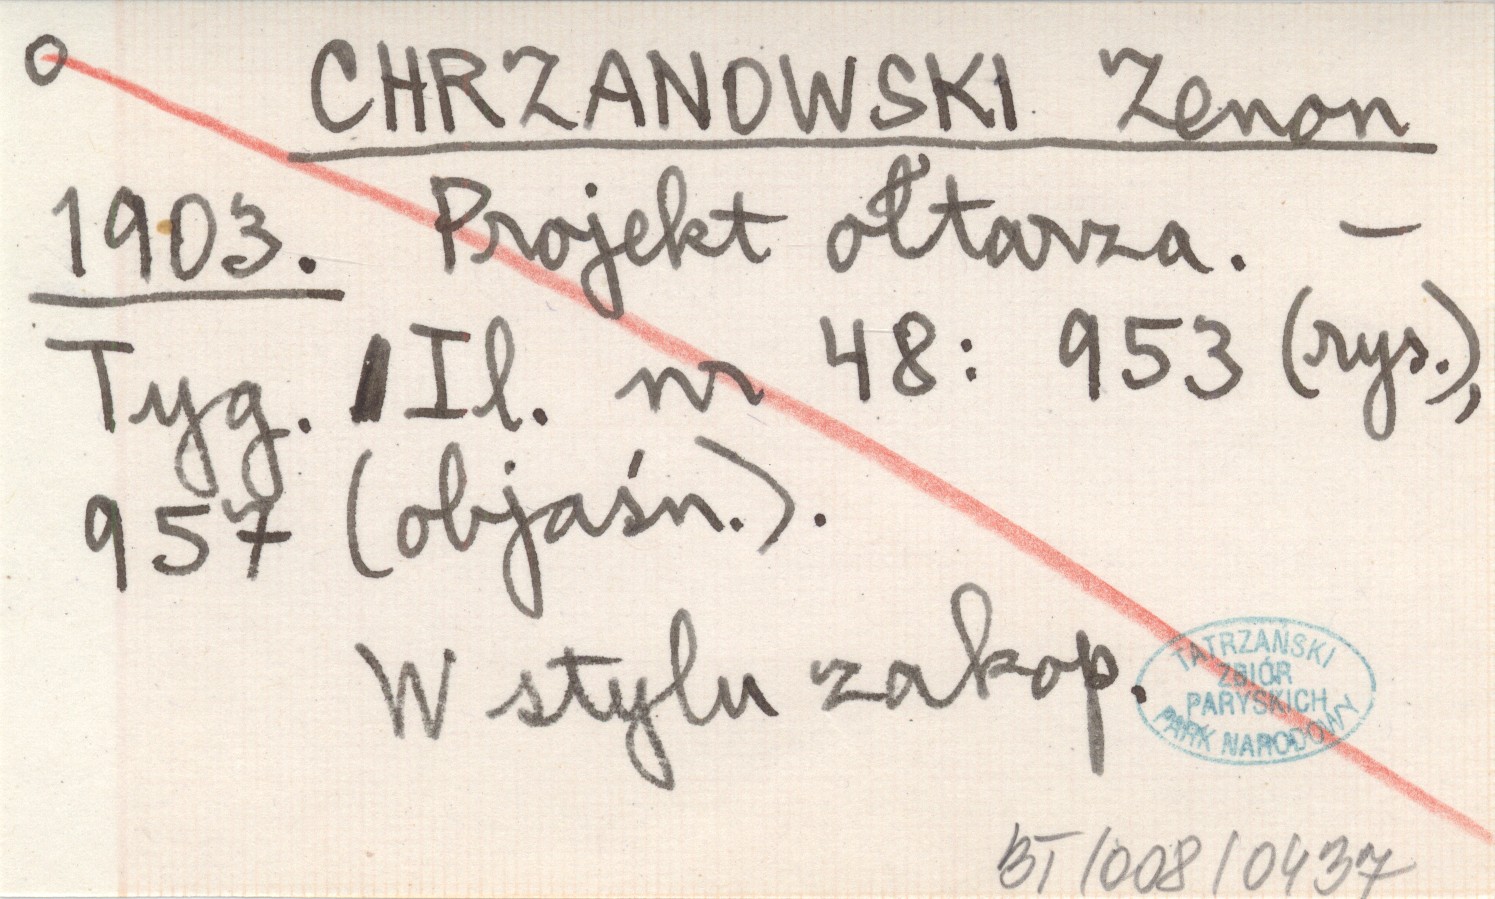 O CHRZANOWSKI Zenon
1903. Projekt ołtarza. –
Tyg. Il. nr 48: 953 (rys.),
957 (objaśn.).
W stylu zakop.
TATRZAŃSKI
ZBIÓR
PARYSKICH
PARK NARODOWY
BT/008/0437